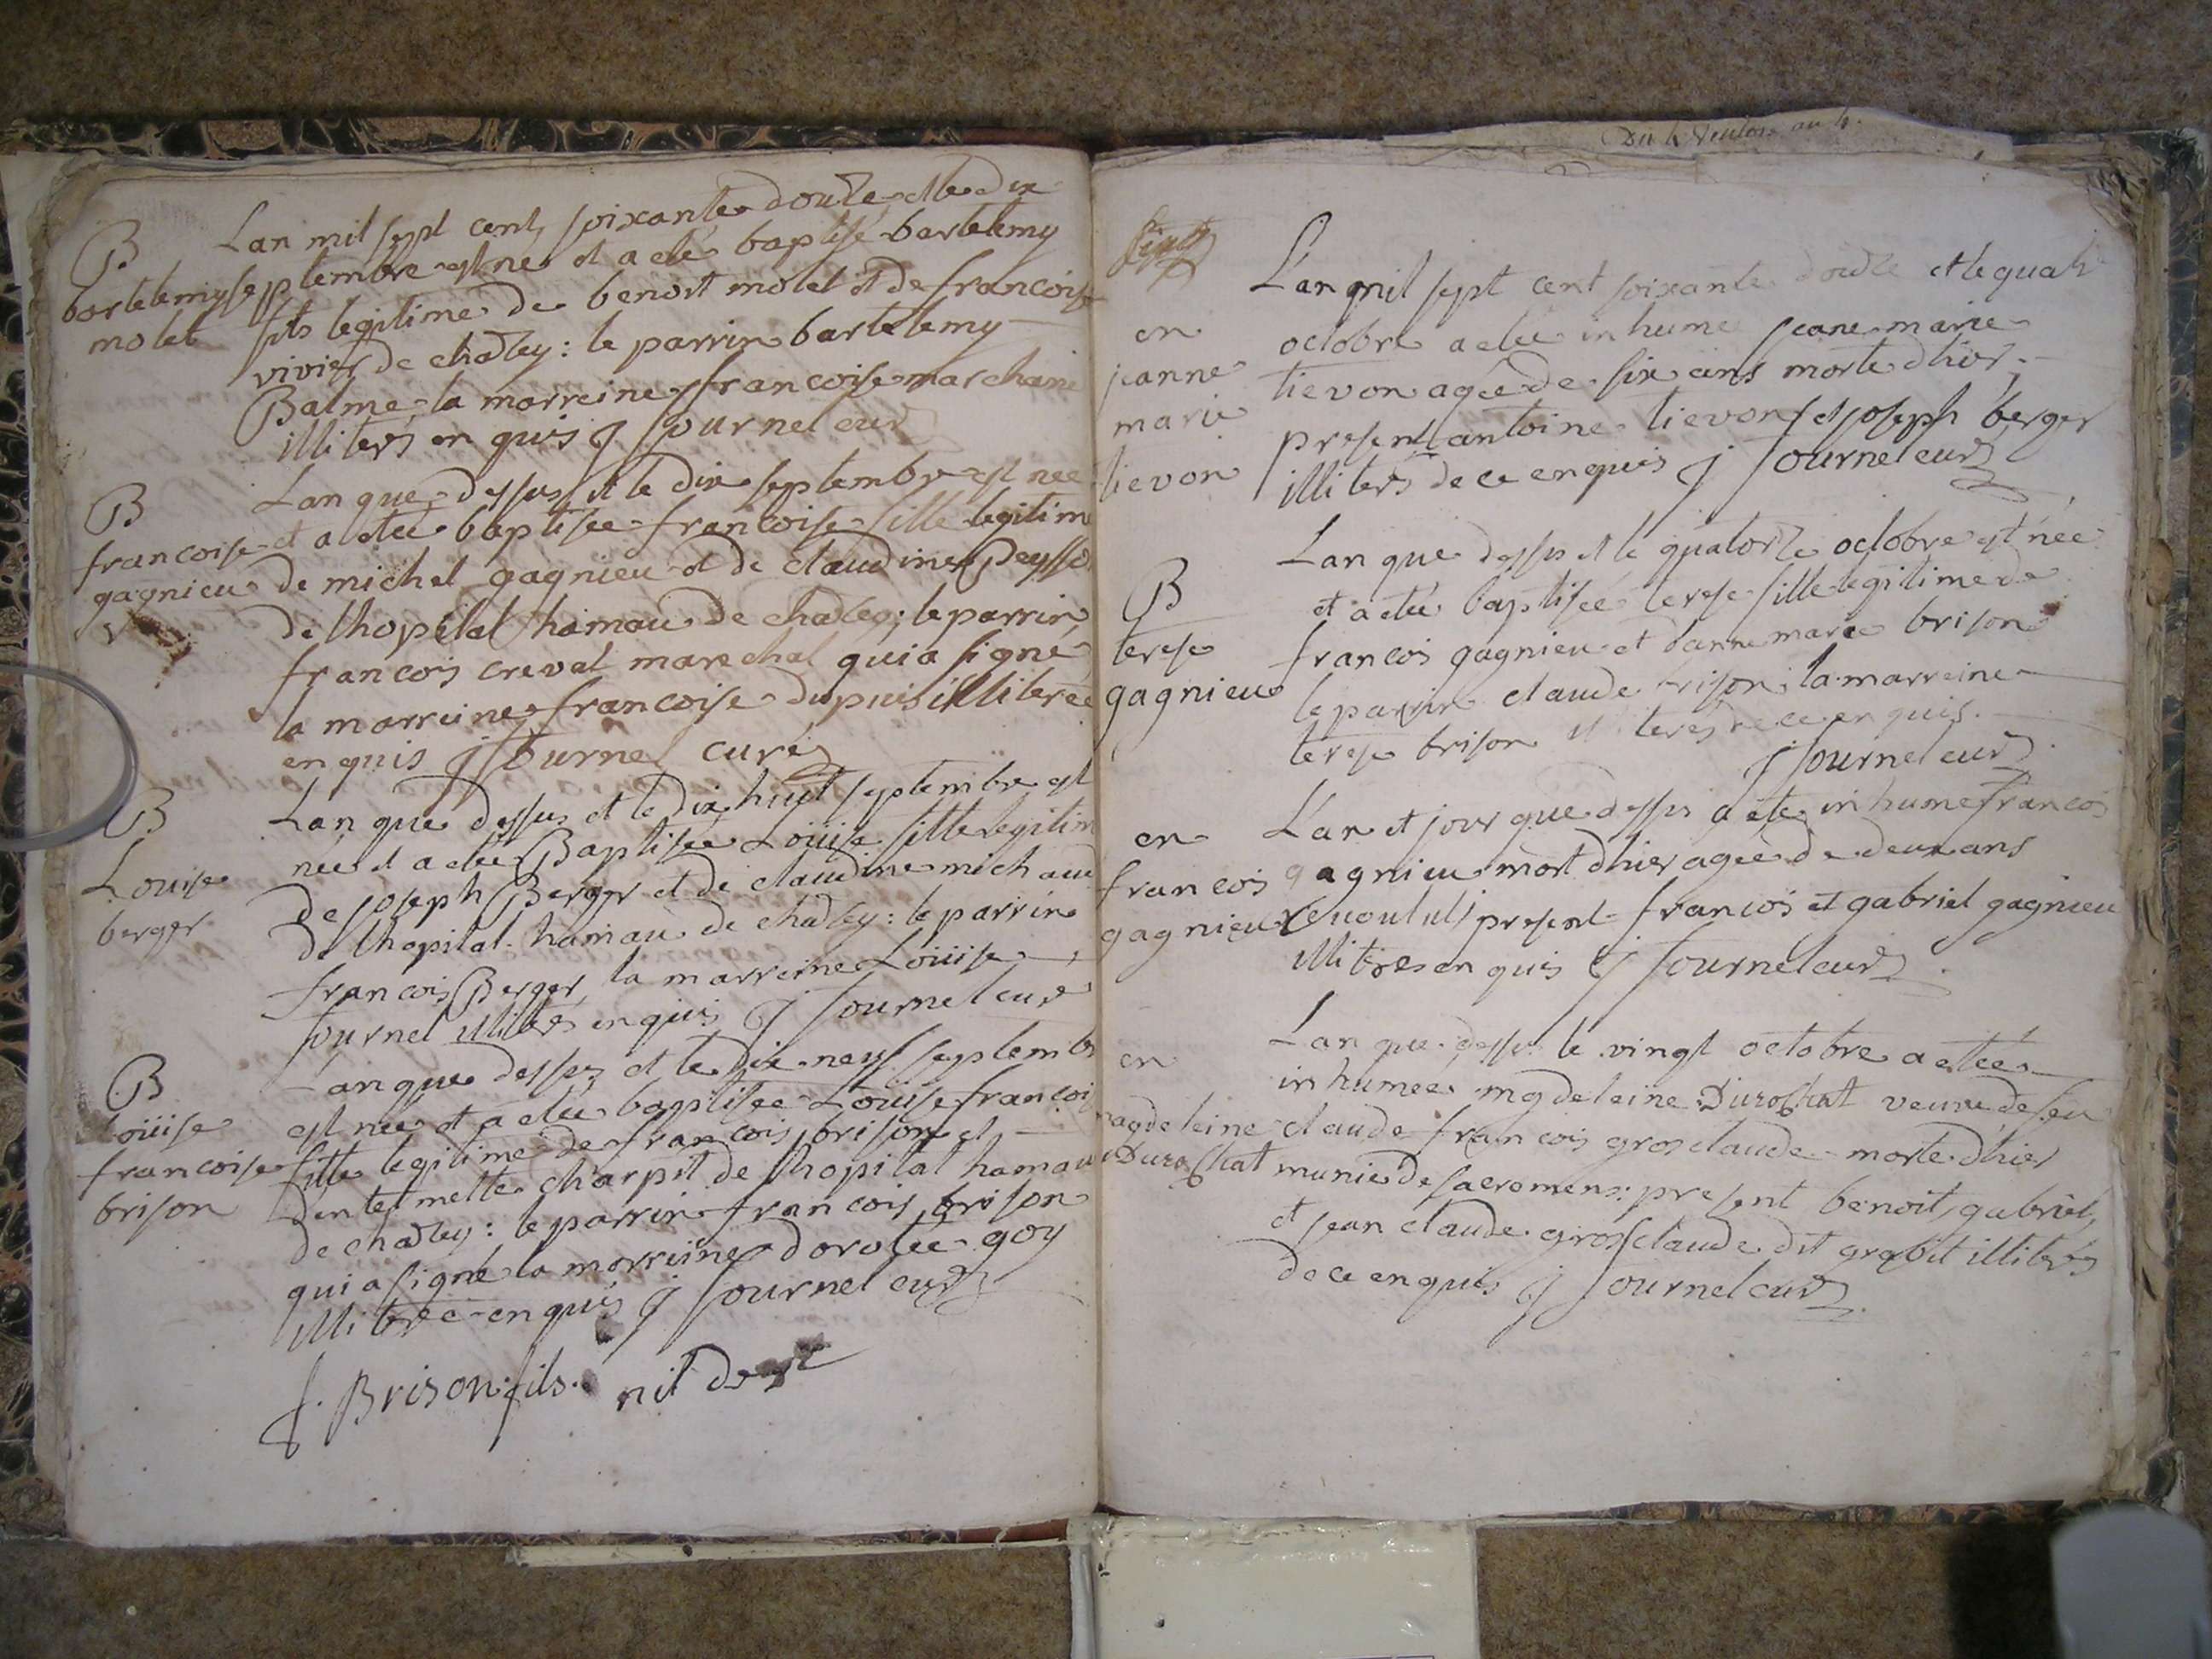 B
bartelemy
molet
Lan mil sept cent soixante douze et le dix
septembre est né et a eté baptisé bartelemy
fils legitime de benoit molet et de francoise
vivier de chaley: le parrin bartelemy
Balme la marreine francoise marchand
illiterés enquis j journel curé
B
francoise
gagnieu
Lan que dessus et le dix septembre est née
et a etée baptisée francoise fille legitime
de michel gagnieu et de claudine
de lhopital hamau de chaley; le parrin
francois crevat marechal qui a signé
la marreine francoise dupuis illiterée
enquis j journel curé
B
Louise
berger
Lan que dessus et le dix huit septembre est
née et a etée Baptisée Louise fille legitime
de joseph Berger et de claudine michaud
de lhopital hamau de chaley: le parrin
francois Berger, la marreine Louise
journel illiterés enquis j journel curé
B
Louise
francoise
brison
Lan que dessus et le dix neuf septembre
est née et a etée baptisée Louise francoise
fille legitime de francois brison et
dentelmette charpit de lhopital hamau
de chaley: le parrin francois brison
qui a signé la marreine dorotée goy
illiterée enquis j journel curé
f. Brison fils. nil deest
en
jeanne
marie
lievon
Lan mil sept cent soixante douze et le quatre
octobre a etée inhumé jeane marie
lievon agée de six ans morte dhier
present antoine lievon et joseph berger
illiterés de ce enquis j journel curé
B
terese
gagnieu
Lan que dessus et le quatorze octobre est née
et a etée baptisée terese fille legitime de
francois gagnieu et danne marie brison
le parrin claude brison, la marreine
terese brison illiterés de ce enquis.
j journel curé
en
francois
gagnieu
Lan et jour que dessus a eté inhumé francois
gagnieu mort dhier agée de deux ans
present francois et gabriel gagnieu
illiteres enquis j journel curé
en
magdeleine
Durochat
Lan que dessus le vingt octobre a etée
inhumée mgdeleine Durochat veuve de feu
claude francois grosclaude morte dhier
munie de sacremens: present benoit, gabriel,
et jean claude grosclaude dit grabit illiterés
de ce enquis j journel curé